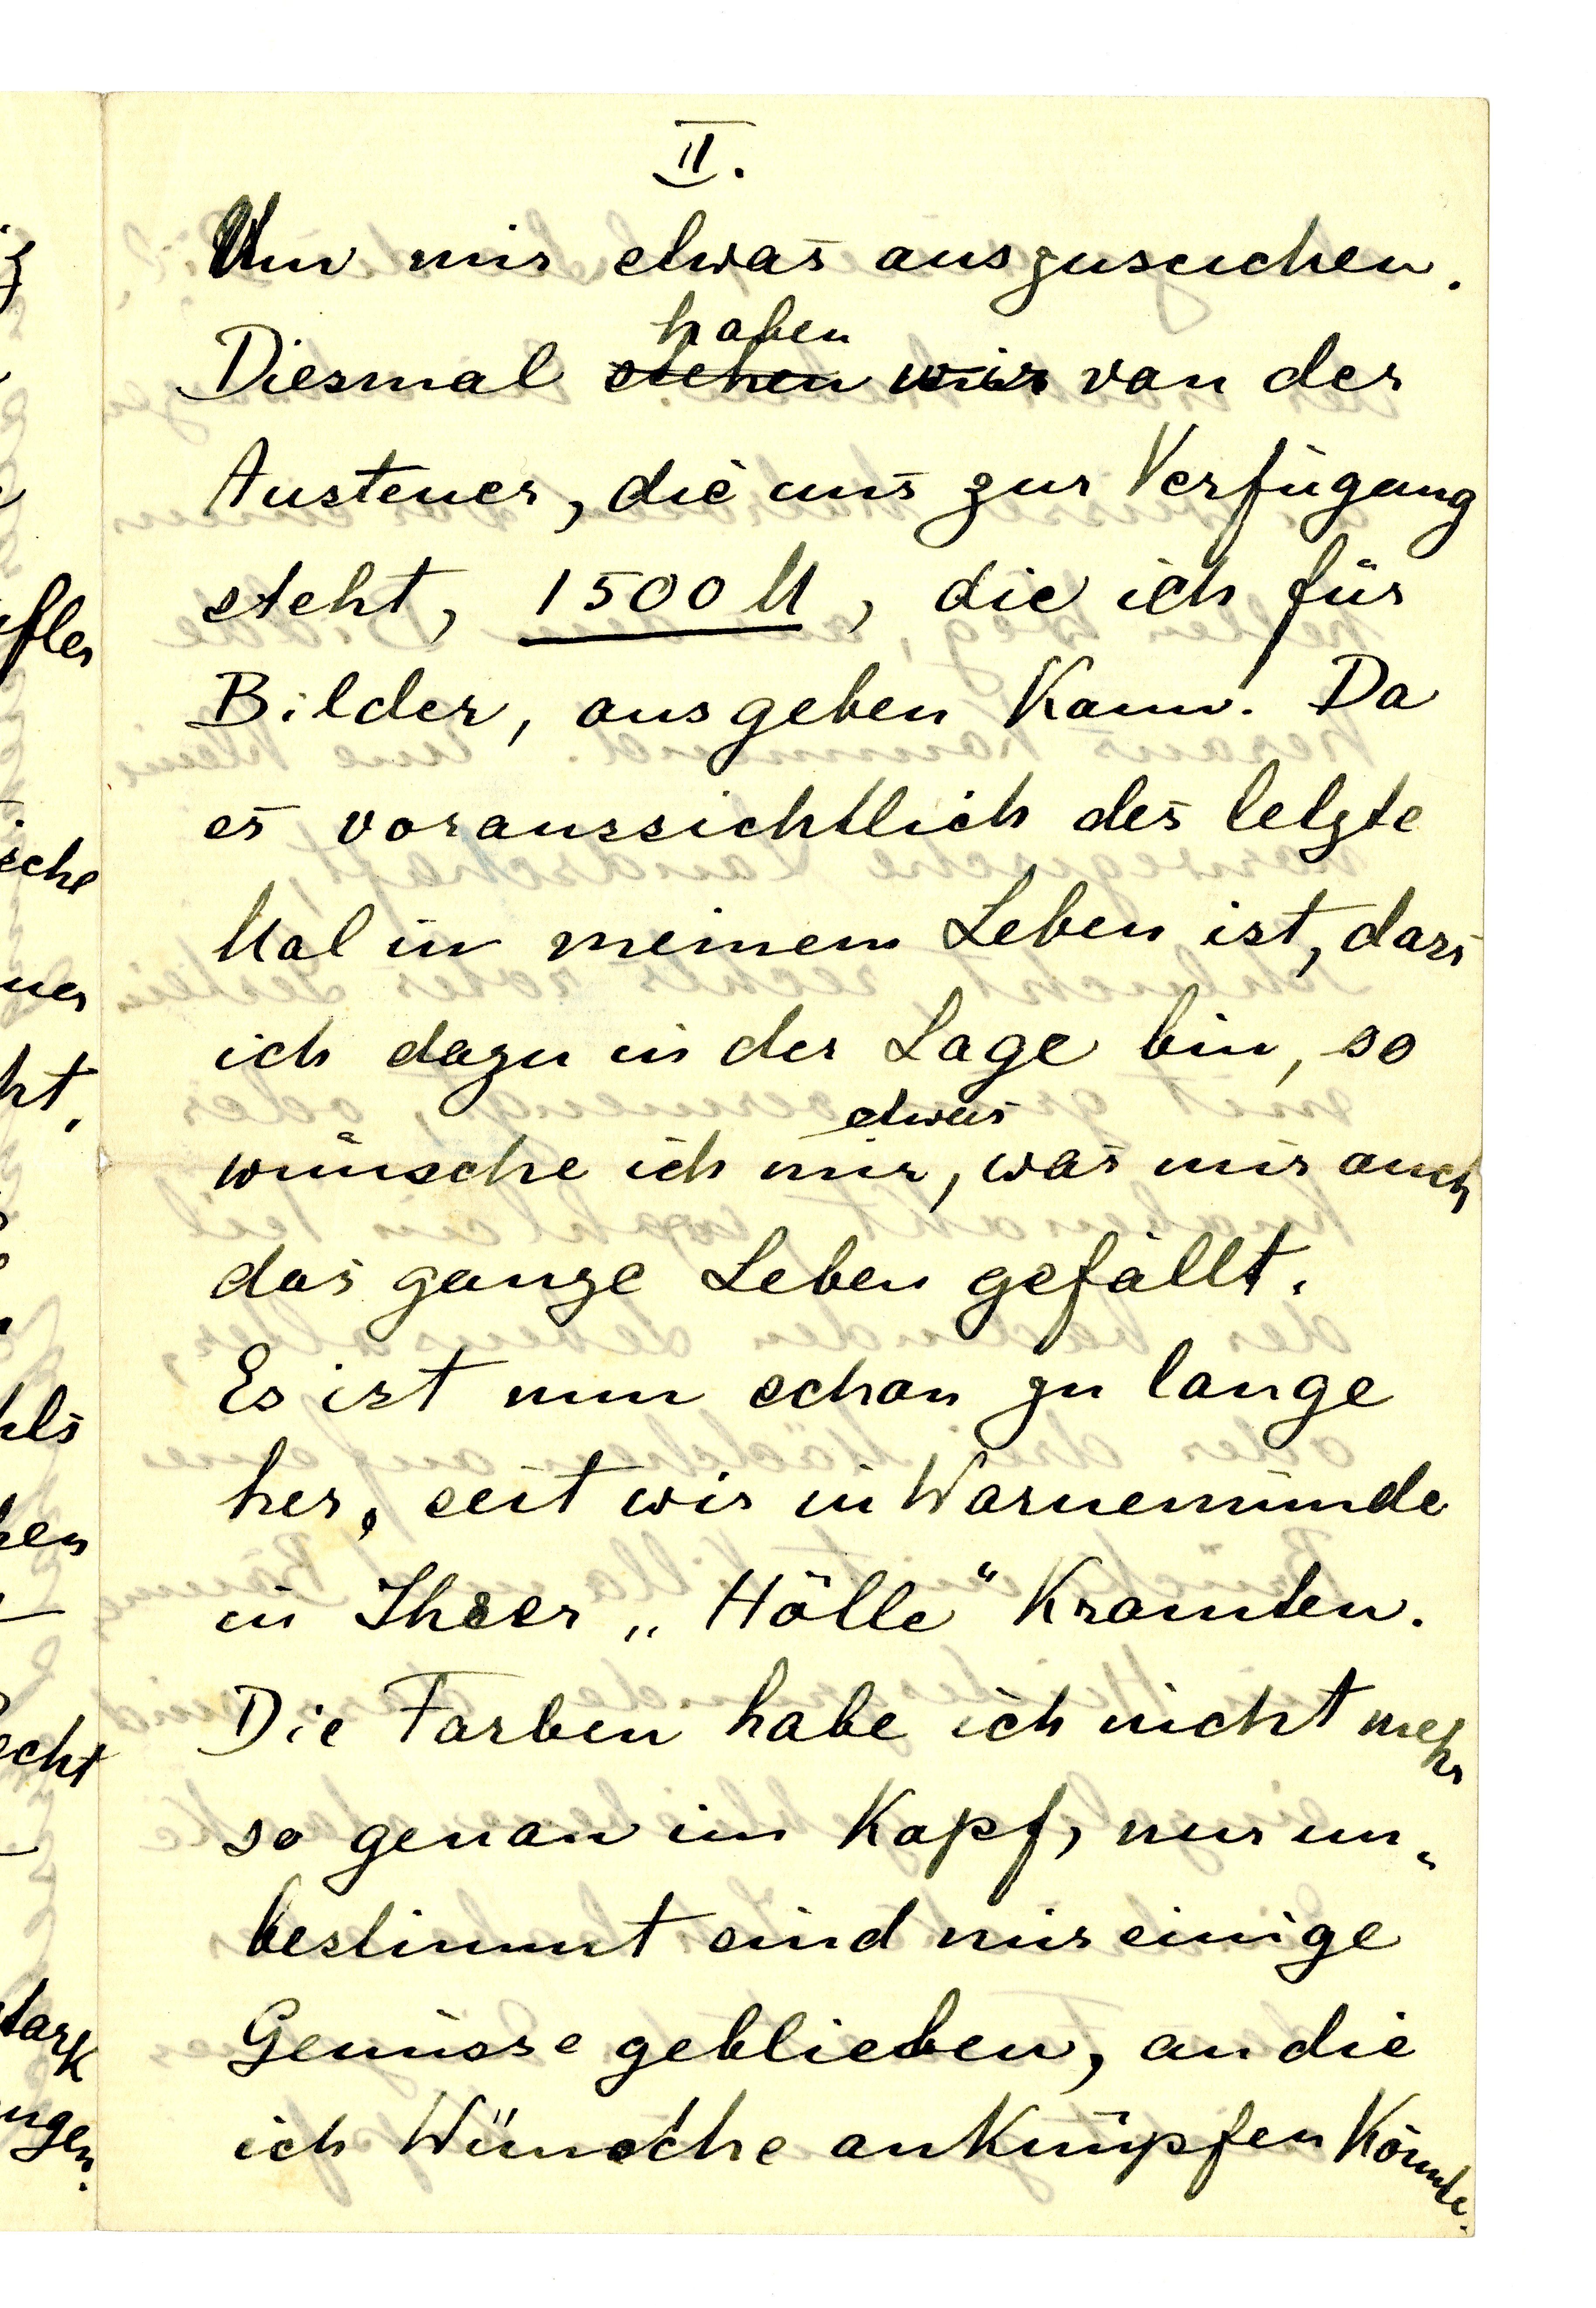 II.
Um mir etwas auszusuchen.
haben
Diesmal stehen wir von der
Austeuer, die uns zur Verfügung
steht, 1500 M, die ich für
Bilder, ausgeben Kann. Da
es voraussichtlich des letzte
Mal in meinem Leben ist, dass
ich dazu in der Lage bin, so
etwas
wünsche ich mir, was mir auch
das ganze Leben gefällt.
Es ist nun schon zu lange
her, seit wir in Warnemünde
in Ihrer „Hölle" Kramten.
Die Farben habe ich nicht mehr
so genau im Kopf, nur un-
bestimmt sind mir einige
Genüsse geblieben, an die
ich Wünsche anKnüpfen Könnte.